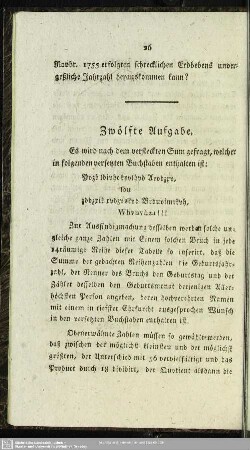 26
Novbr. 1755 erfolgten schrecklichen Erdbebens unver-
geßliche Jahrzahl herauskommen kann?
Zwölfte Aufgabe.
Es wird nach dem versteckten Sinn gefragt, welcher
in folgenden versetzten Buchstaben enthalten ist:
Zur Ausfindigmachung desselben werden solche un-
gleiche ganze Zahlen mit Einem solchen Bruch in jede
24räumige Reihe dieser Tabelle so inserirt, daß die
Summe der gedachten Reihenzahlen die Geburtsjahr-
zahl, der Nenner des Bruchs den Geburtstag und der
Zähler desselben den Geburtsmonat derjenigen Aller-
höchsten Person angeben, deren hochverehrten Namen
mit einem in tiefster Ehrfurcht ausgesprochnen Wunsch
in den versetzten Buchstaben enthalten ist.
Obenerwähnte Zahlen müssen so gewählt werden,
daß zwischen der möglichst kleinsten und der möglichst
größten, der Unterschied mit 36 vervielfältigt und das
Product durch 18 dividirt, der Quotient alsdann die